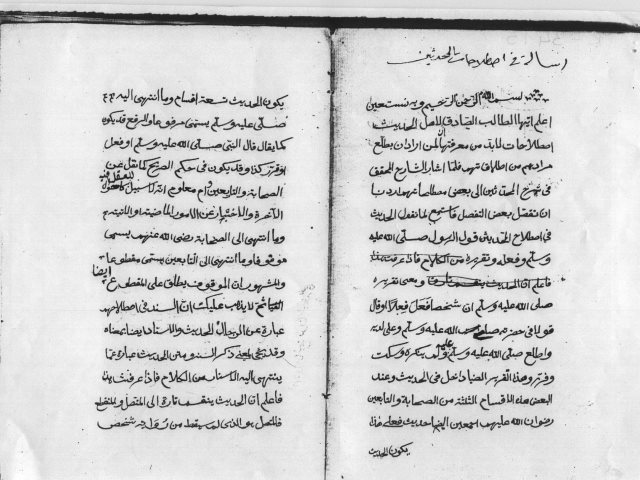 رسالة في اصطلاحات المحدثين
بسم الله الرحمن الرحيم وبه نستعين
اعلم ايها الطالب الصادق لاهل الحديث
اصطلاحات لابد من معرفتها لمن اراد ان يطلع
مرادهم من اطلاقاتهم فلما اشار الشارع المحقق
في شرح المحققين الى بعض مصطلحاتهم اردنا
ان نفصل بعض التفصيل فاستمع لما نقول الحديث
في اصطلاح المحدثين قول الرسول صلى الله عليه
وسلم وفعله وتقريره من الكلام فاذا عرفت هذا
فاعلم ان الحديث ومعنى تقريره
صلى الله عليه وسلم ان شخصا فعل فعلا او قال
قولا في حضرته صلى الله عليه وسلم وعلى لديه
واطلع صلى الله عليه وسلم عليه ولم ينكره وسكت
وقرر وهذا التقرير ايضا داخل في الحديث وعند
البعض هذه الاقسام الثلثة من الصحابة والتابعين
رضوان الله عليهم اجمعين ايضا حديث فعلى هذا
يكون الحديث
يكون الحديث تسعة اقسام وما انتهى اليه
صلى عليه وسلم يسمى مرفوعا والرفع قد يكون
كما يقال قال النبي صلى الله عليه وسلم او فعل
او قرر كذا وقد يكون في حكم الصريح كما نقل عن
الصحابة والتابعين ام معلوم انه لا سبيل للعقل فيه
الآخرة والاخبار عن الامور الماضية والآتية
وما انتهى الى الصحابة رضى الله عنهم يسمى
موقوفا وما انتهى الى التابعين يسمى مقطوعا
والمشهور ان الموقوف يطلق على المقطوع ايضا
لا يذهب عليك ان السند في اصطلاحهم
عبارة عن الرجال الحديث والاسناد ايضا بمعناه
وقد يجئ بمعنى ذكر السند ومتن الحديث عبارة عما
ينتهى اليه الاسناد من الكلام فاذا عرفت هذا
فاعلم ان الحديث ينقسم تارة الى المتصل والمنقطع
فالمتصل هو الذى لم يسقط من رواته شخص